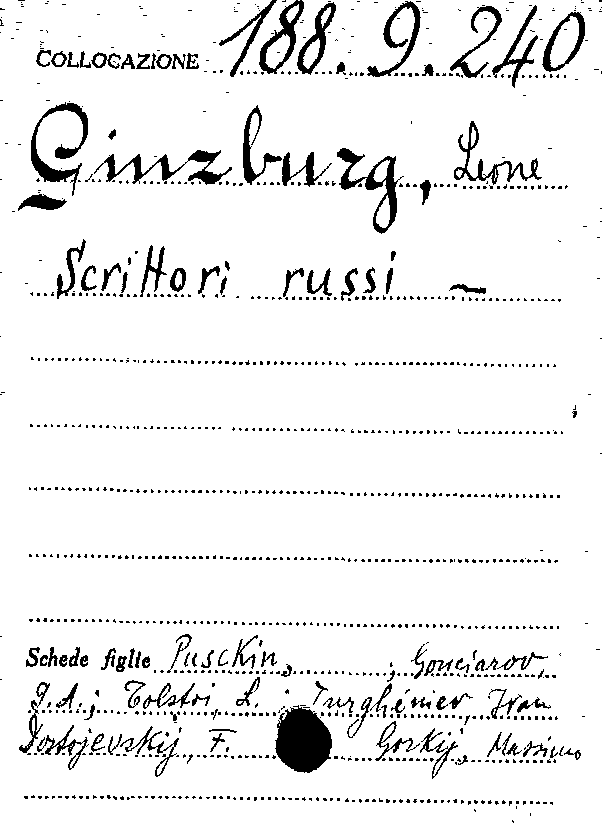 COLLOCAZIONE 188.9.240
Ginzburg, Leone
Scrittori russi —
Schede figlie Pusckin, ; Gonciarov,
I.A.; Tolstoi, L. ; Turghéniev, Ivan
Dostojevskij, F. Gorkij, Massimo